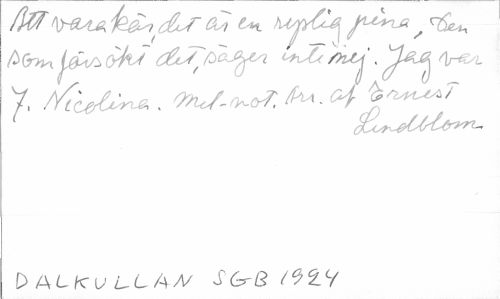 Att vara kär, det är en ryslig pina, den
som försökt det, säger inte nej. Jag var
7. Nicolina. Mel.-not. Arr. af Ernest
Lindblom.
DALKULLAN SGB 1924